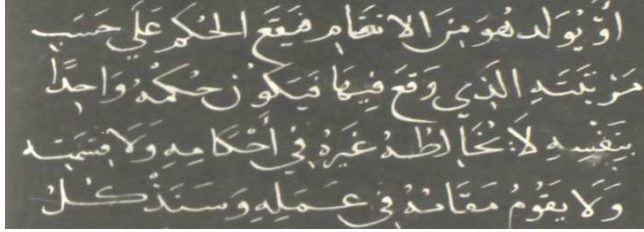 أَوْ يُولد هُوَ مِنَ الانتقام فَيَقَع الحُكم عَلَي حَسَبِ
مَرْتَبَتِهِ الَّذِي وَقَعَ فِيهَا فَيَكُونُ حُكْمُهُ وَاحِدًا
بِنَفْسِهِ لَا يُخَالطُهُ غَيْرُهُ فِي أَحْكَامِهِ وَلَا قِسْمَتِه
وَلَا يَقُومُ مَقَامَهُ فِي عَمَلِهِ وَسَنَذْكُلُ